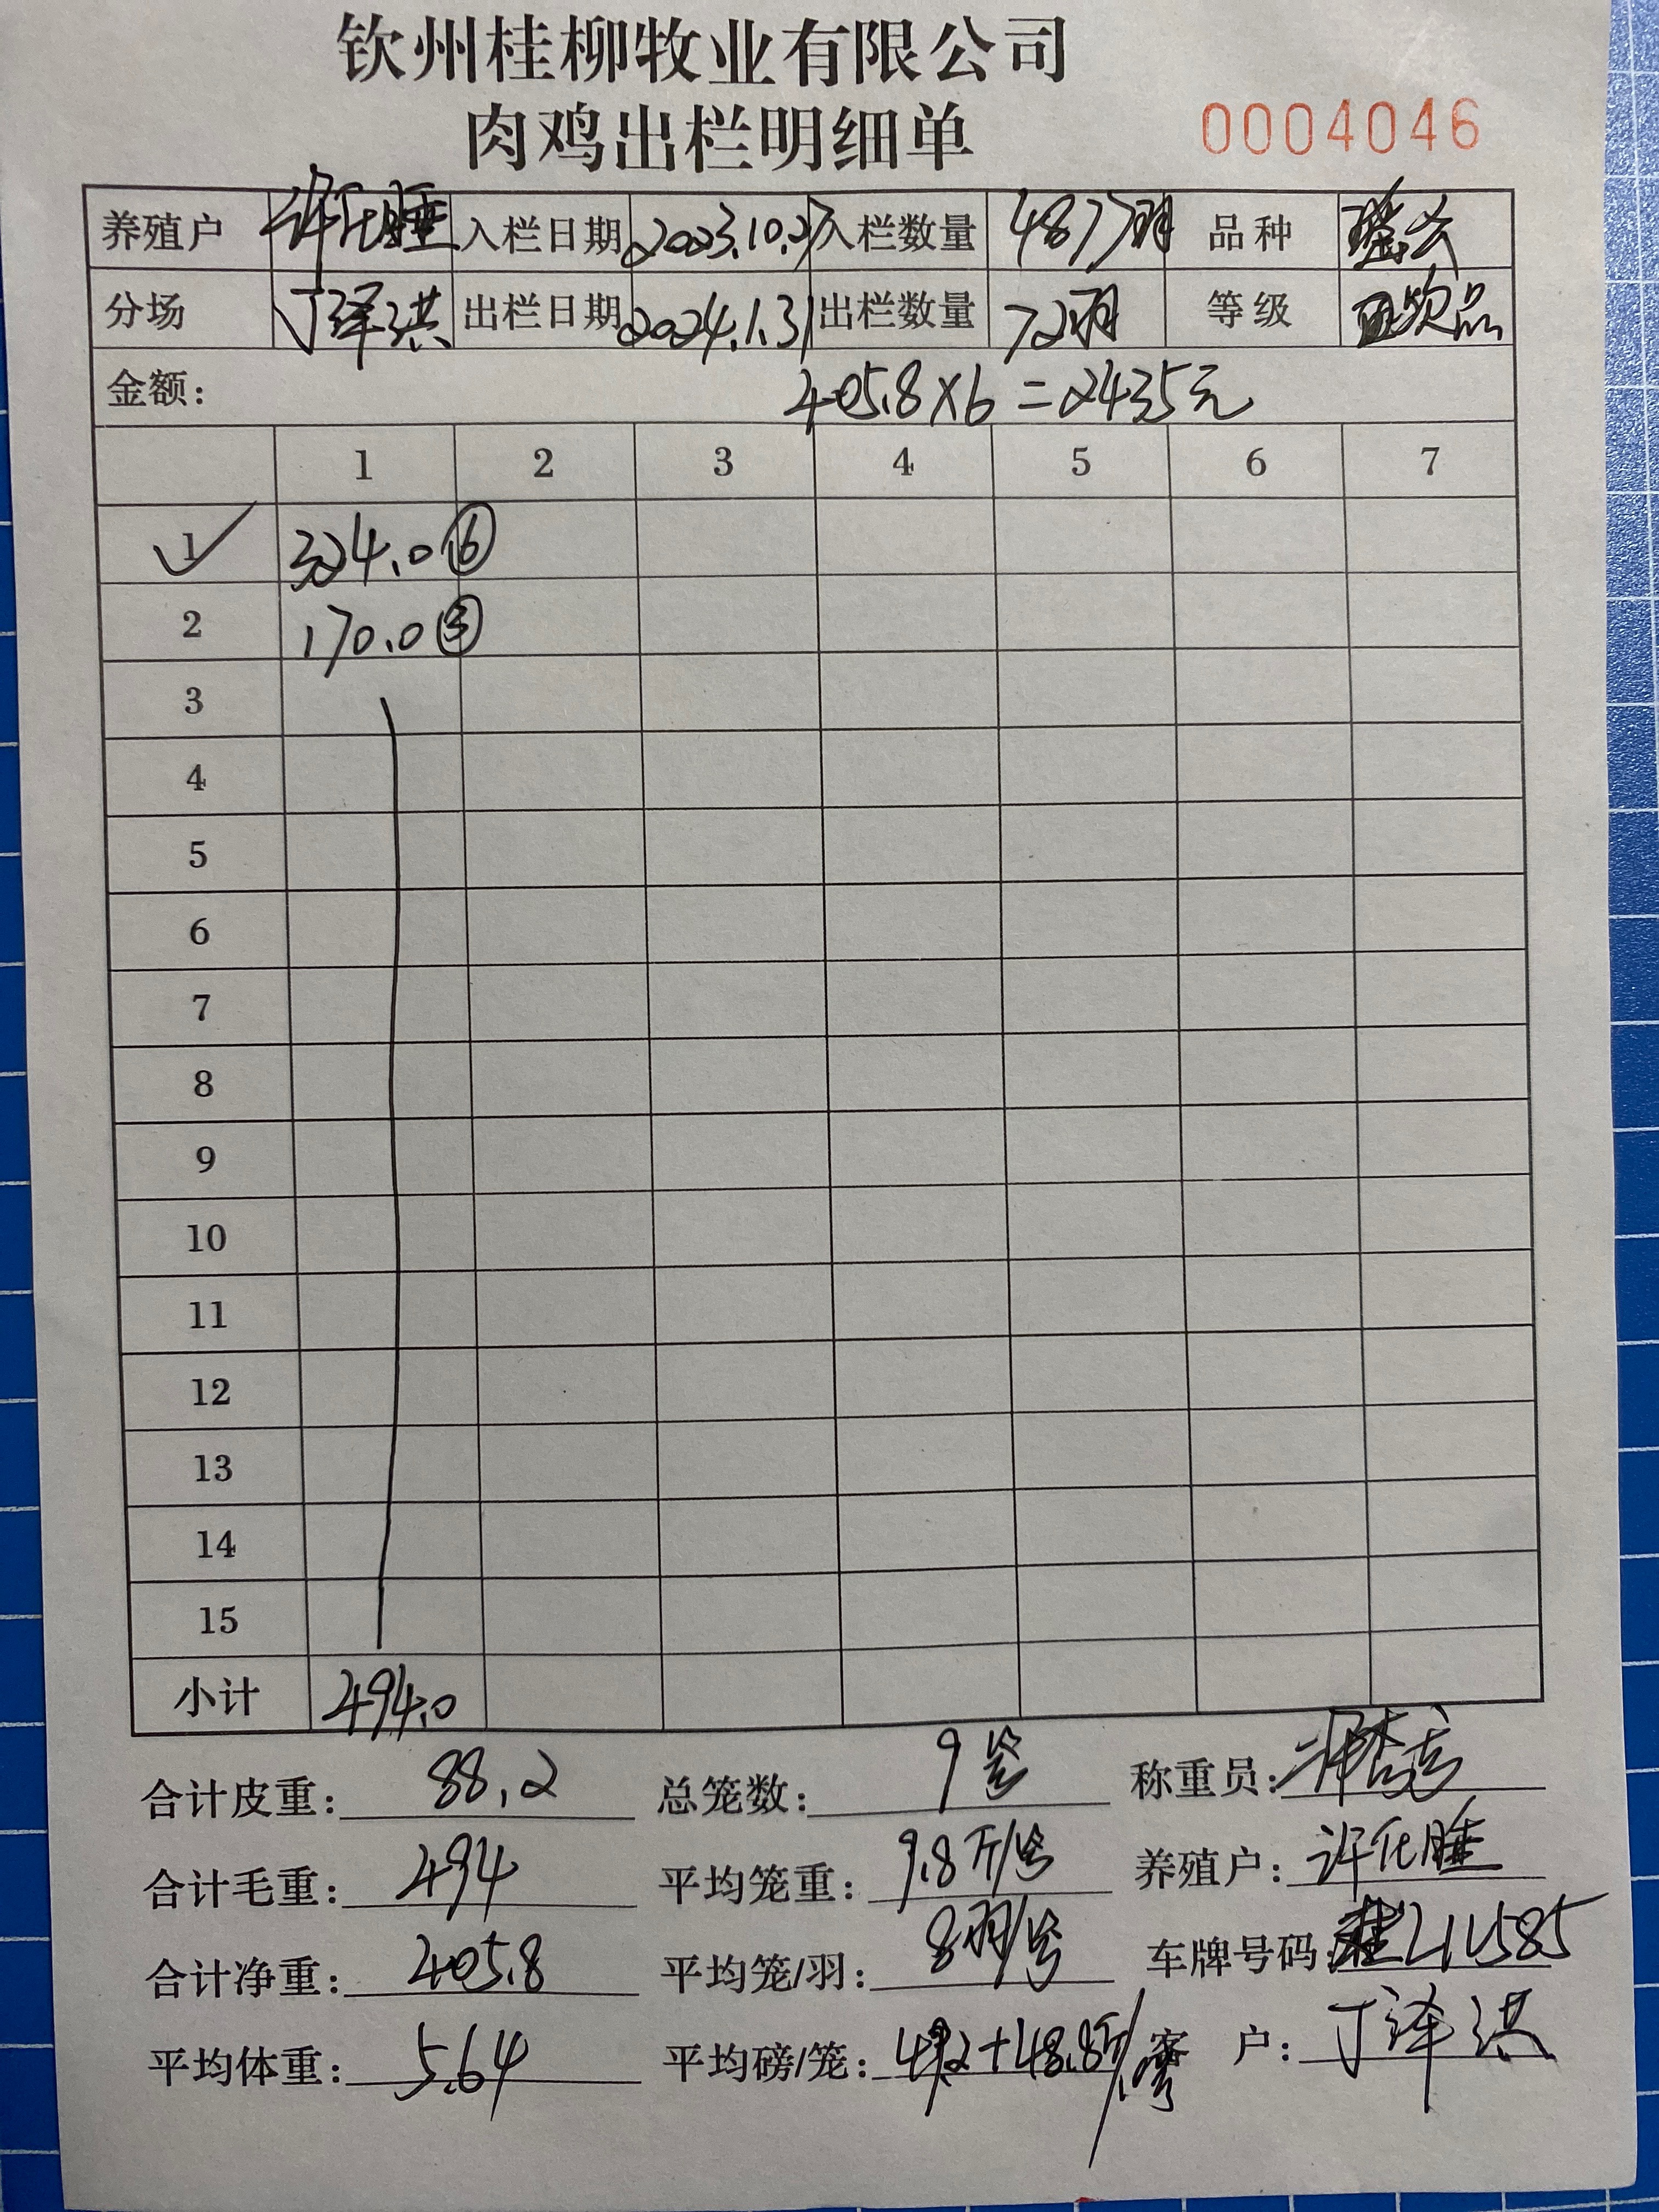 钦州桂柳牧业有限公司
肉鸡出栏明细单 0004046
养殖户 许化 入栏日期 2023.10.27 入栏数量 4877羽 品种
分场 丁泽洪 出栏日期 2024.1.31 出栏数量 72羽 等级 次品
金额: 405.8×6=2435元
1 2 3 4 5 6 7
1 324.0 ⑥
2 170.0 ③
3
4
5
6
7
8
9
10
11
12
13
14
15
小计 494.0
合计皮重: 88.2 总笼数: 9笼 称重员:
合计毛重: 494 平均笼重: 9.8斤/笼 养殖户: 许化
合计净重: 405.8 平均笼/羽: 8羽/笼 车牌号码:
平均体重: 5.64 平均磅/笼: 48.8斤/ 客户: 丁泽洪